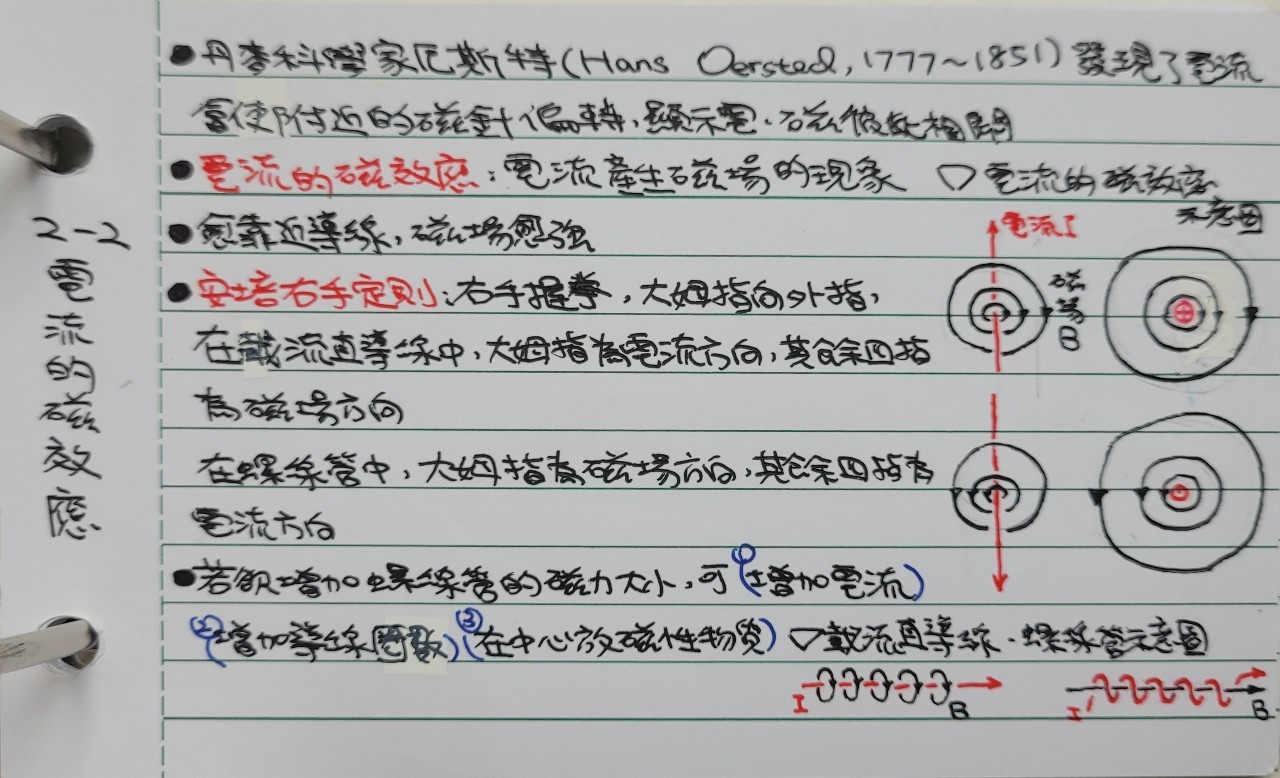 2-2 電流的磁效應
●丹麥科學家厄斯特(Hans Oersted, 1777~1851)發現了電流
會使附近的磁針偏轉,顯示電、磁彼此相關
●電流的磁效應:電流產生磁場的現象 ▽電流的磁效應
示意圖
●愈靠近導線,磁場愈強
電流I
●安培右手定則:右手握拳,大姆指向外指,
磁場B
在載流直導線中,大姆指為電流方向,其餘四指
為磁場方向
在螺線管中,大姆指為磁場方向,其餘四指為
電流方向
●若欲增加螺線管的磁力大小,可(①增加電流)
(②增加導線圈數)(③在中心放磁性物質) ▽載流直導線、螺線管示意圖
I B
I B